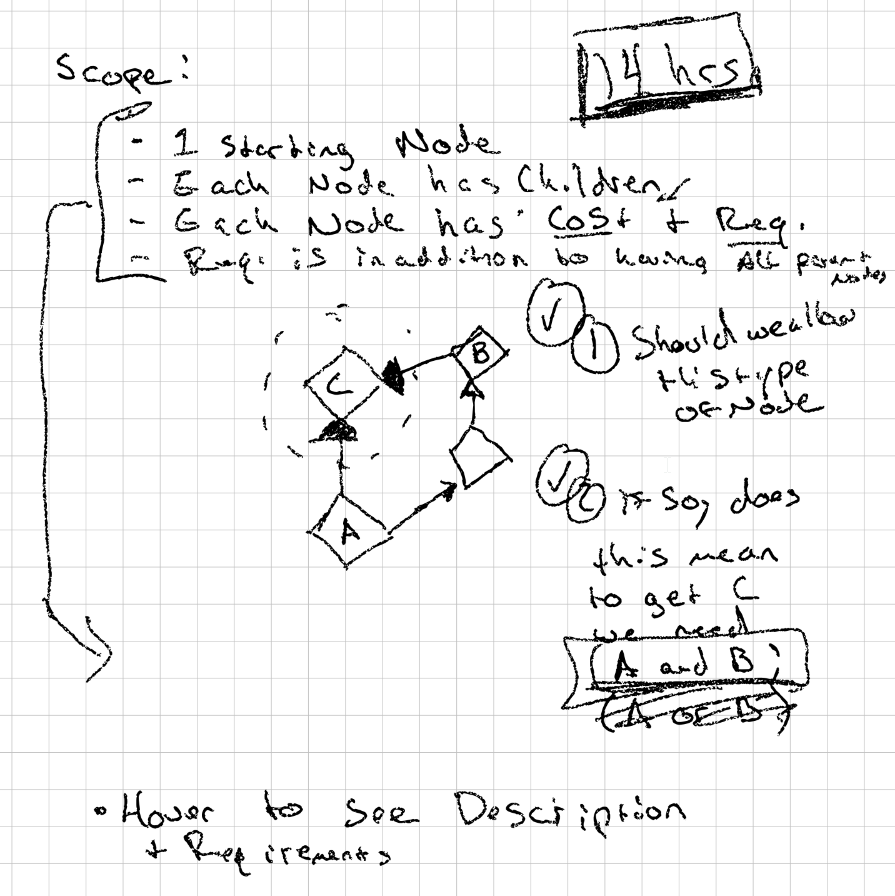 Scope:
14 hrs
- 1 Starting Node
- Each Node has Children
- Each Node has Cost + Req.
- Req. is in addition to having ALL parent Nodes
B
C
A
1 Should we allow
this type
of Node
2 if so, does
this mean
to get C
we need
(A and B)
(A or B)
• Hover to see Description
+ Requirements